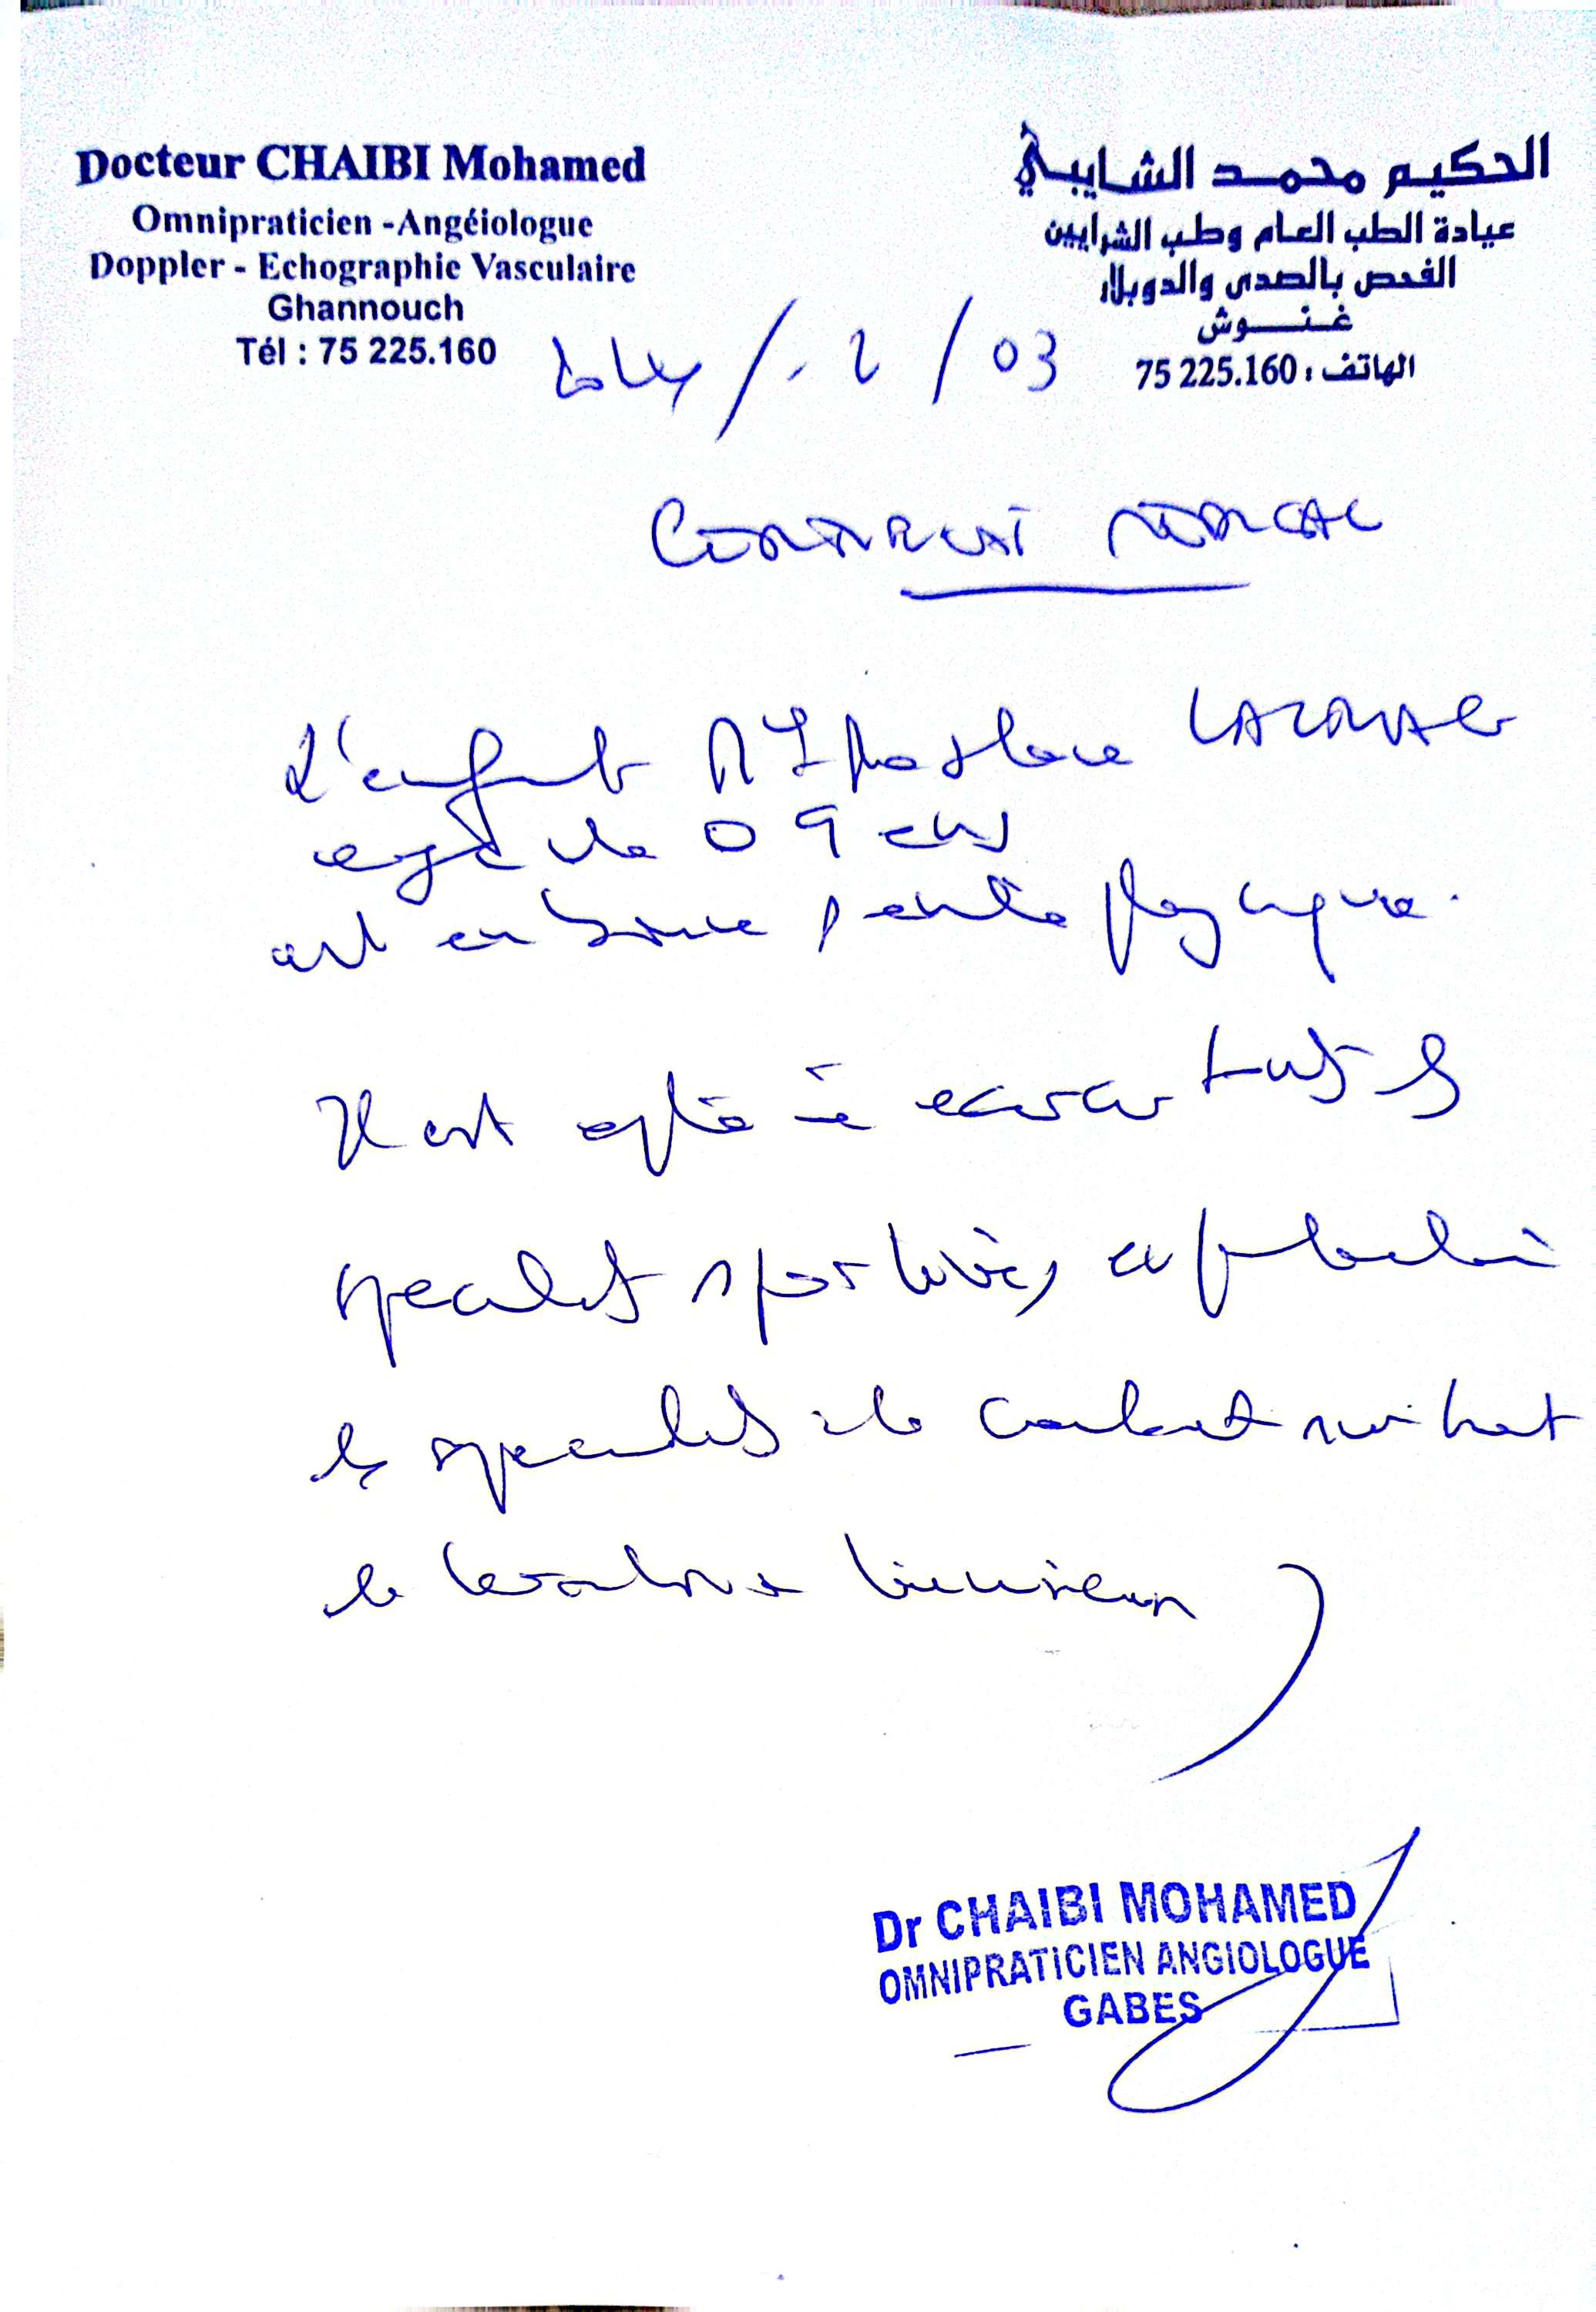 Docteur CHAIBI Mohamed
Omnipraticien -Angéiologue
Doppler - Echographie Vasculaire
Ghannouch
Tél : 75 225.160
الحكيم محمد الشايبي
عيادة الطب العام وطب الشرايين
الفحص بالصدى والدوبلار
غنوش
الهاتف : 75 225.160
/ 03
CERTIFICAT MEDICAL
L'enfant
age de 09 ans
est en bonne santé physique.
Il est apte à exercer toutes les
specialités sportives en particulier
les specialités de combat suivant
la législation
Dr CHAIBI MOHAMED
OMNIPRATICIEN ANGIOLOGUE
GABES